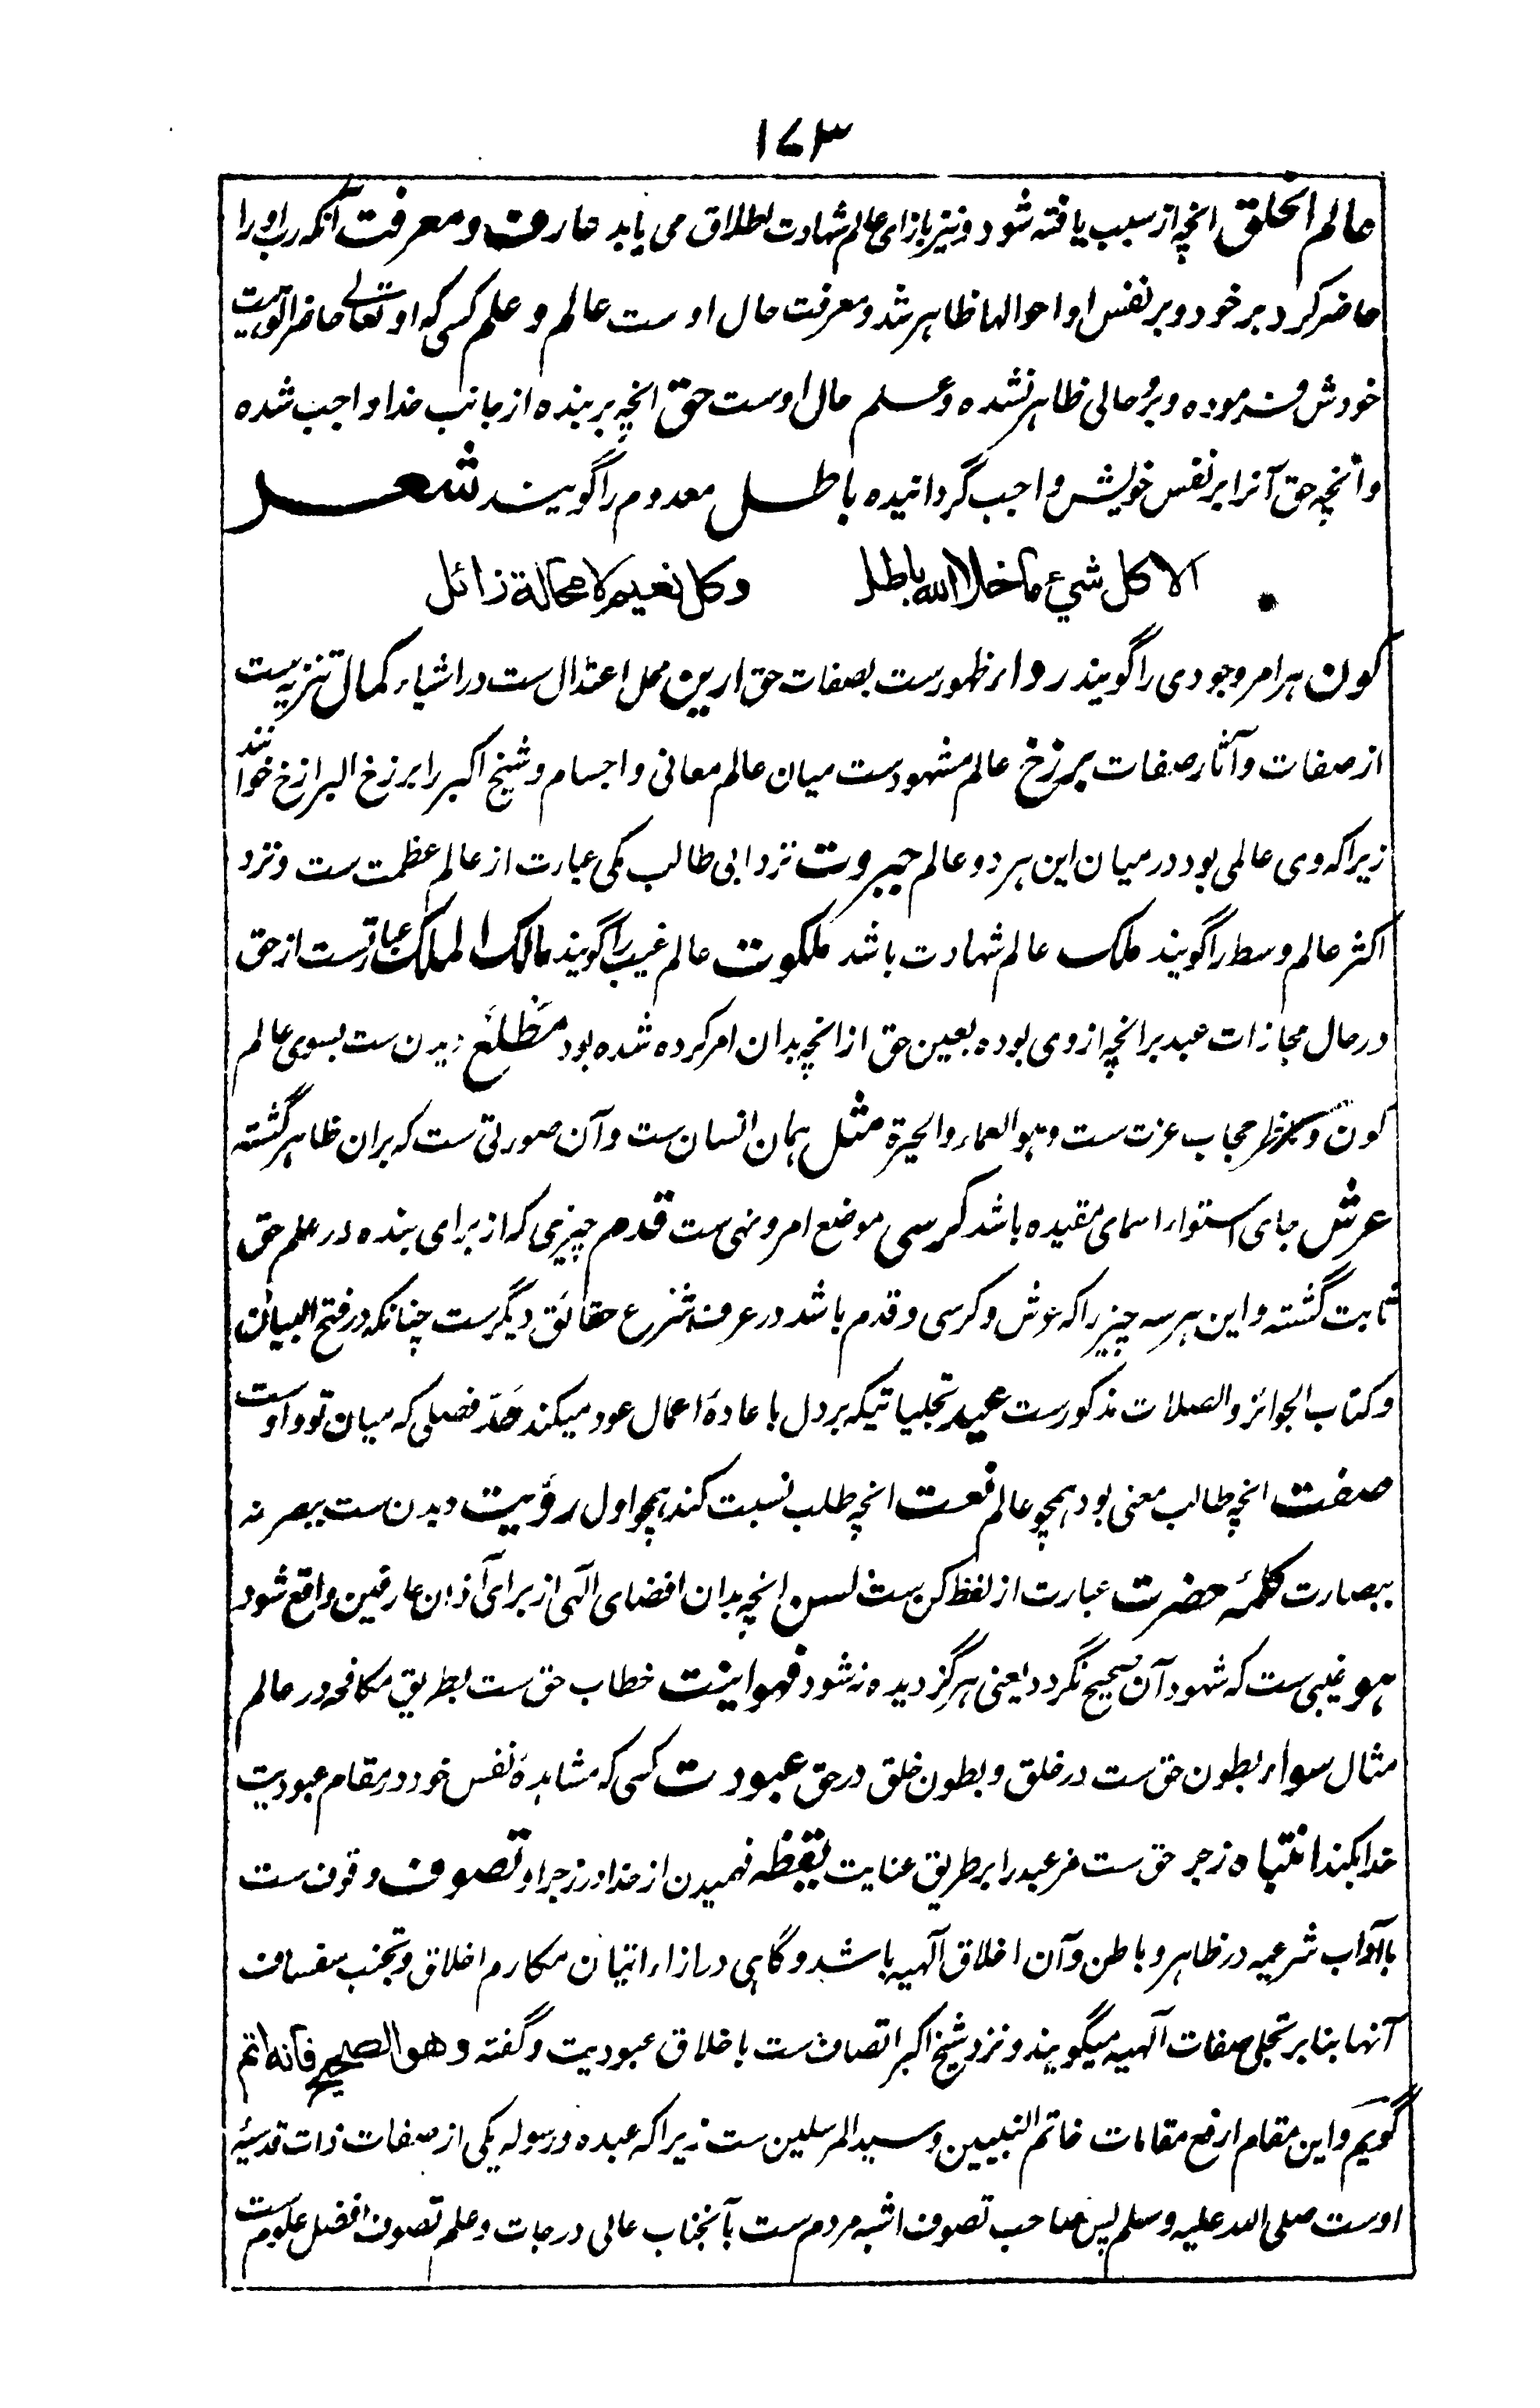 ١٧٣
عالم الخلق انچه از سبب یافته شود و نیز بازای عالم شهادت اطلاق می یابد عارف و معرفت آنکه رب او را
حاضر کرد بر خود و بر نفس او احوالها ظاهر شد و معرفت حال اوست عالم و علم کسی که او تعالی حاضر الوهیت
خودش فرموده و بر و حالی ظاهر نشده و علم حال اوست حق انچه بر بنده از جانب خدا واجب شده
وانچه حق آنرا بر نفس خویش واجب گردانیده باطل معدوم را گویند شعر
الا كل شيء ما خلا الله باطل وكل نعيم لا محالة زائل
کون هر امر وجودی را گویند رداء ظهورست بصفات حق ارین محل اعتدال ست در اشیاء کمال تنزیه ست
از صفات و آثار صفات برزخ عالم مشهودست میان عالم معانی و اجسام و شیخ اکبر را برزخ البرازخ خوانند
زیرا که وی عالمی بود درمیان این هر دو عالم جبروت نزد ابی طالب مکی عبارت از عالم عظمت ست و نزد
اکثر عالم وسط را گویند ملک عالم شهادت باشد ملکوت عالم غیب را گویند مالک الملک عبارتست از حق
در حال مجازات عبد بر انچه از وی بوده بعین حق از انچه بدان امر کرده شده بود مطلع دیدن ست بسوی عالم
کون و حجاب عزت ست و هو العماء والحیرة مثل همان انسان ست و آن صورتی ست که بران ظاهر گشته
عرش جای استواء اسمای مقیده باشد کرسی موضع امر و نهی ست قدم چیزی که از برای بنده در علم حق
ثابت گشته و این هر سه چیز را که عرش و کرسی و قدم باشد در عرف شرع حقائق دیگرست چنانکه در فتح البیان
و کتاب الجوائز والصلات مذکورست عید تجلیاتیکه بر دل باعادهٔ اعمال عود میکند حد فصلی که میان تو و اوست
صفت انچه طالب معنی بود همچو عالم نعت انچه طلب نسبت کند همچو اول رؤیت دیدن ست ببصر نه
ببصارت کلمۂ حضرت عبارت از لفظ کن ست لسن انچه بدان افضای الهی از برای آذان عارفین واقع شود
هو غیبی ست که شهود آن صحیح نگردد یعنی هرگز دیده نشود فهوانیت خطاب حق ست بطریق مکافحه در عالم
مثال سواء بطون حق ست در خلق و بطون خلق در حق عبودت کسی که مشاهدۂ نفس خود در مقام عبودیت
خدا بکند انتباه زجر حق ست مر عبد را بر طریق عنایت یقظه فهمیدن از خدا در زجر او تصوف وقوف ست
بآداب شرعیه در ظاهر و باطن و آن اخلاق الهیه باشد و گاهی در ازاء اتیان مکارم اخلاق و تجنب سفساف
آنها بنا بر تجلی صفات الهیه میگویند و نزد شیخ اکبر اتصاف ست باخلاق عبودیت و گفته وهو الصحیح فانه اتم
گویم و این مقام ارفع مقامات خاتم النبیین و سید المرسلین ست زیرا که عبده و رسوله یکی از صفات ذات قدسیۂ
اوست صلی الله علیه وسلم پس صاحب تصوف اشبه مردم ست بآنجناب عالی درجات و علم تصوف افضل علوم ست